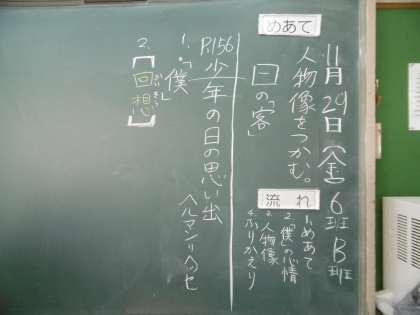 11月29日(金)6班B班
めあて
人物像をつかむ。
一の「客」
流れ
1.めあて
2.「僕」の心情
3.人物像
4.ふりかえり
P.156 少年の日の思い出
ヘルマン・ヘッセ
1.「僕」
2.【回想】
かいそう